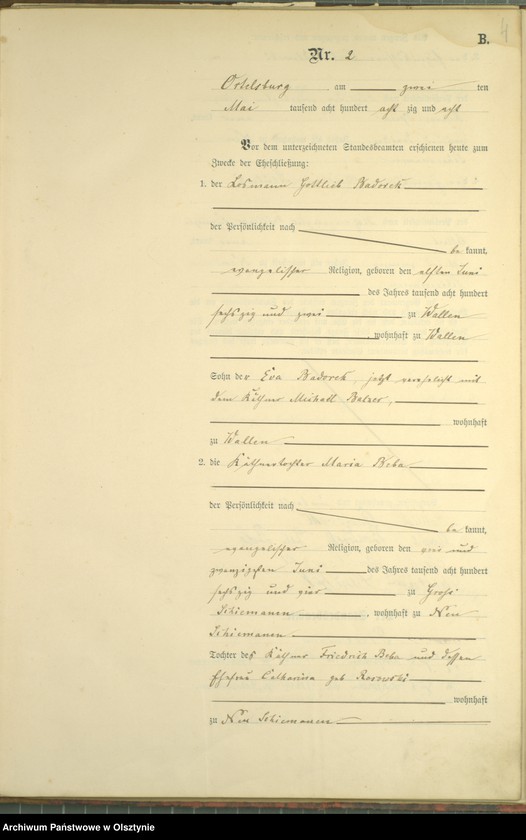 4
B.
Nr. 2
Ortelsburg am zwei ten
Mai tausend acht hundert acht zig und acht
Vor dem unterzeichneten Standesbeamten erschienen heute zum
Zwecke der Eheschließung:
1. der Losmann Gottlieb Badorek
der Persönlichkeit nach
be kannt,
evangelischer Religion, geboren den elften Juni
des Jahres tausend acht hundert
sechszig und zwei zu Wallen
, wohnhaft zu Wallen
Sohn der Eva Badorek, jetzt verehelicht mit
dem Käthner Michael Balzer,
wohnhaft
zu Wallen
2. die Käthnertochter Maria Beba
der Persönlichkeit nach
be kannt,
evangelischer Religion, geboren den und
zwanzigsten Juni des Jahres tausend acht hundert
sechszig und vier zu Groß
Schiemanen , wohnhaft zu Neu
Schiemanen
Tochter des Käthner Friedrich Beba und dessen
Ehefrau Catharina geb
wohnhaft
zu Neu Schiemanen
Archiwum Państwowe w Olsztynie